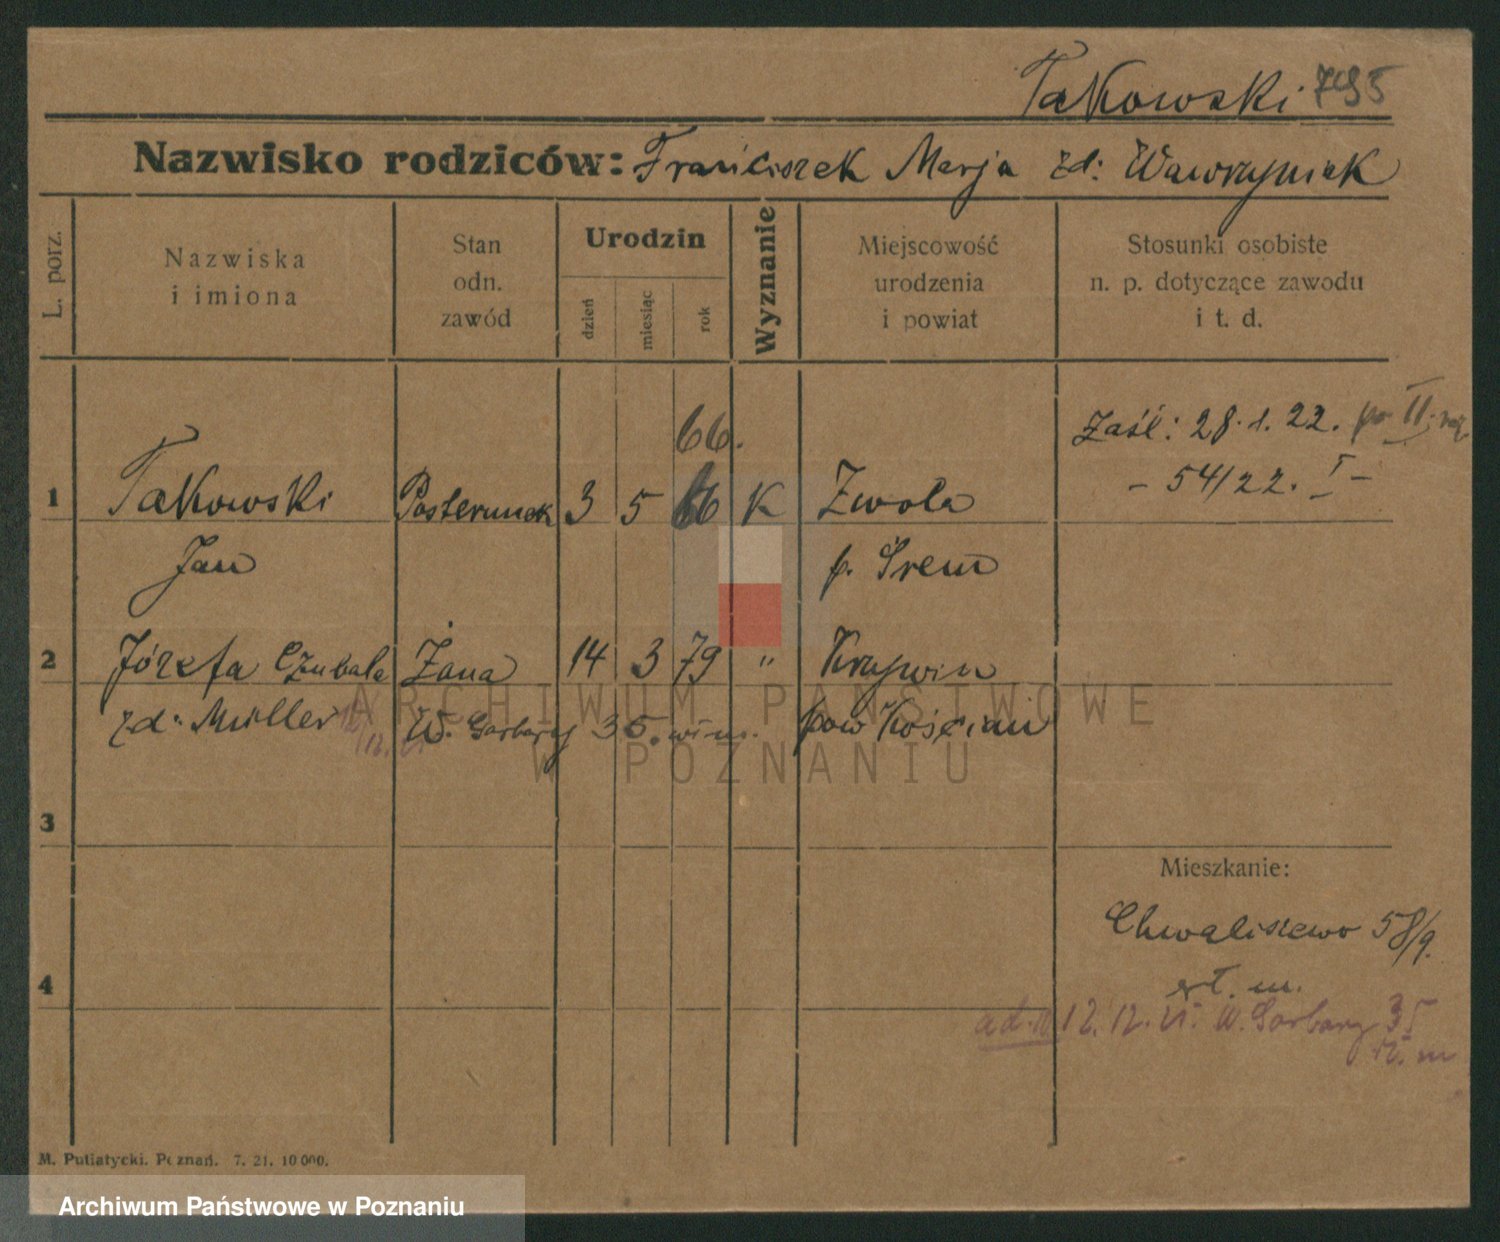 Takowski 795
Nazwisko rodziców: Franciszek Marja zd: Wawrzyniak
L. porz.
Nazwiska
i imiona
Stan
odn.
zawód
Urodzin
dzień
miesiąc
rok
Wyznanie
Miejscowość
urodzenia
i powiat
Stosunki osobiste
n. p. dotyczące zawodu
i t. d.
Zaśl: 28.1.22. po II.
- 54/22. I -
66.
1 Takowski Posterunek 3 5 66 K Zwola
Jan p. Śrem
2 Józefa Czubala Żona 14 3 79 " Krzywin
zd: Müller W. Garbary 35. pow Kościan
3
Mieszkanie:
Chwaliszewo 58/9.
4
12.12. W. Garbary 35
M. Putiatycki. Poznań. 7. 21. 10 000.
ARCHIWUM PAŃSTWOWE
W POZNANIU
Archiwum Państwowe w Poznaniu